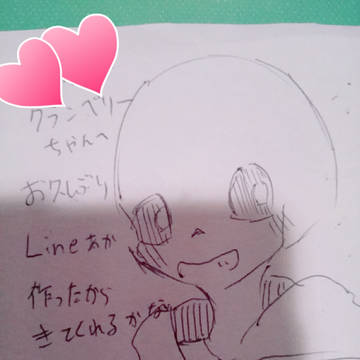 クランベリー
ちゃんへ
お久しぶり
Lineあか
作ったから
きてくれるかな